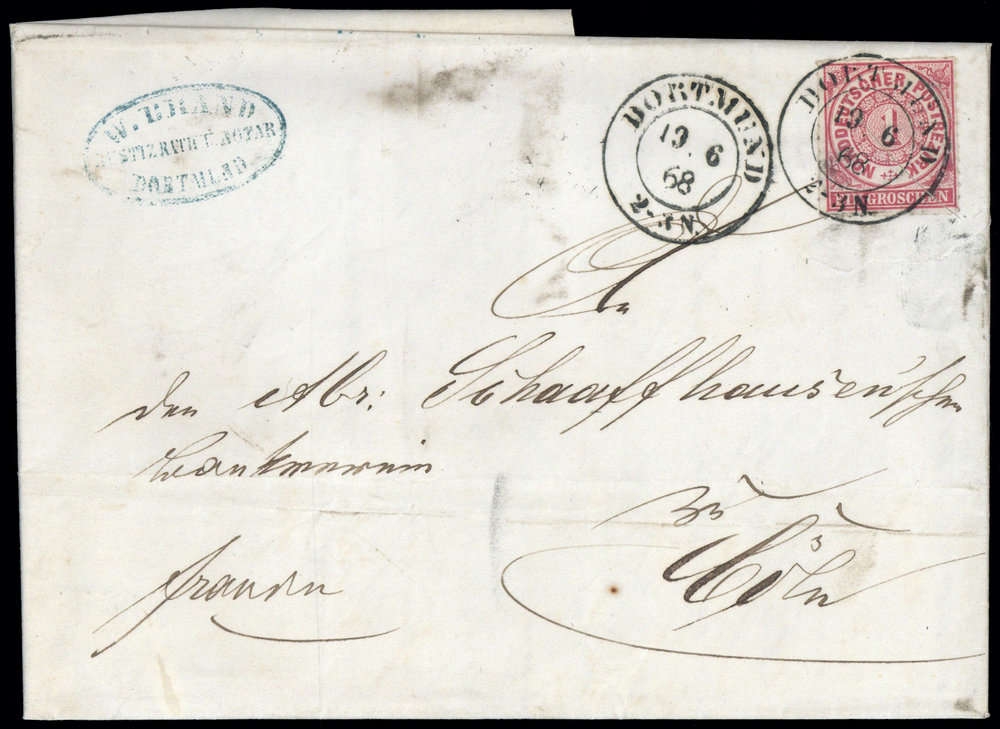 W. BRAND
DORTMUND
DORTMUND
13 6
68
2-3 N.
DORTMUND
13 6
68
2-3 N.
NORDDEUTSCHER POSTBEZIRK
1
EIN GROSCHEN
An
den Abr: Schaaffhausen'schen
Bankverein
zu
Cöln
franco